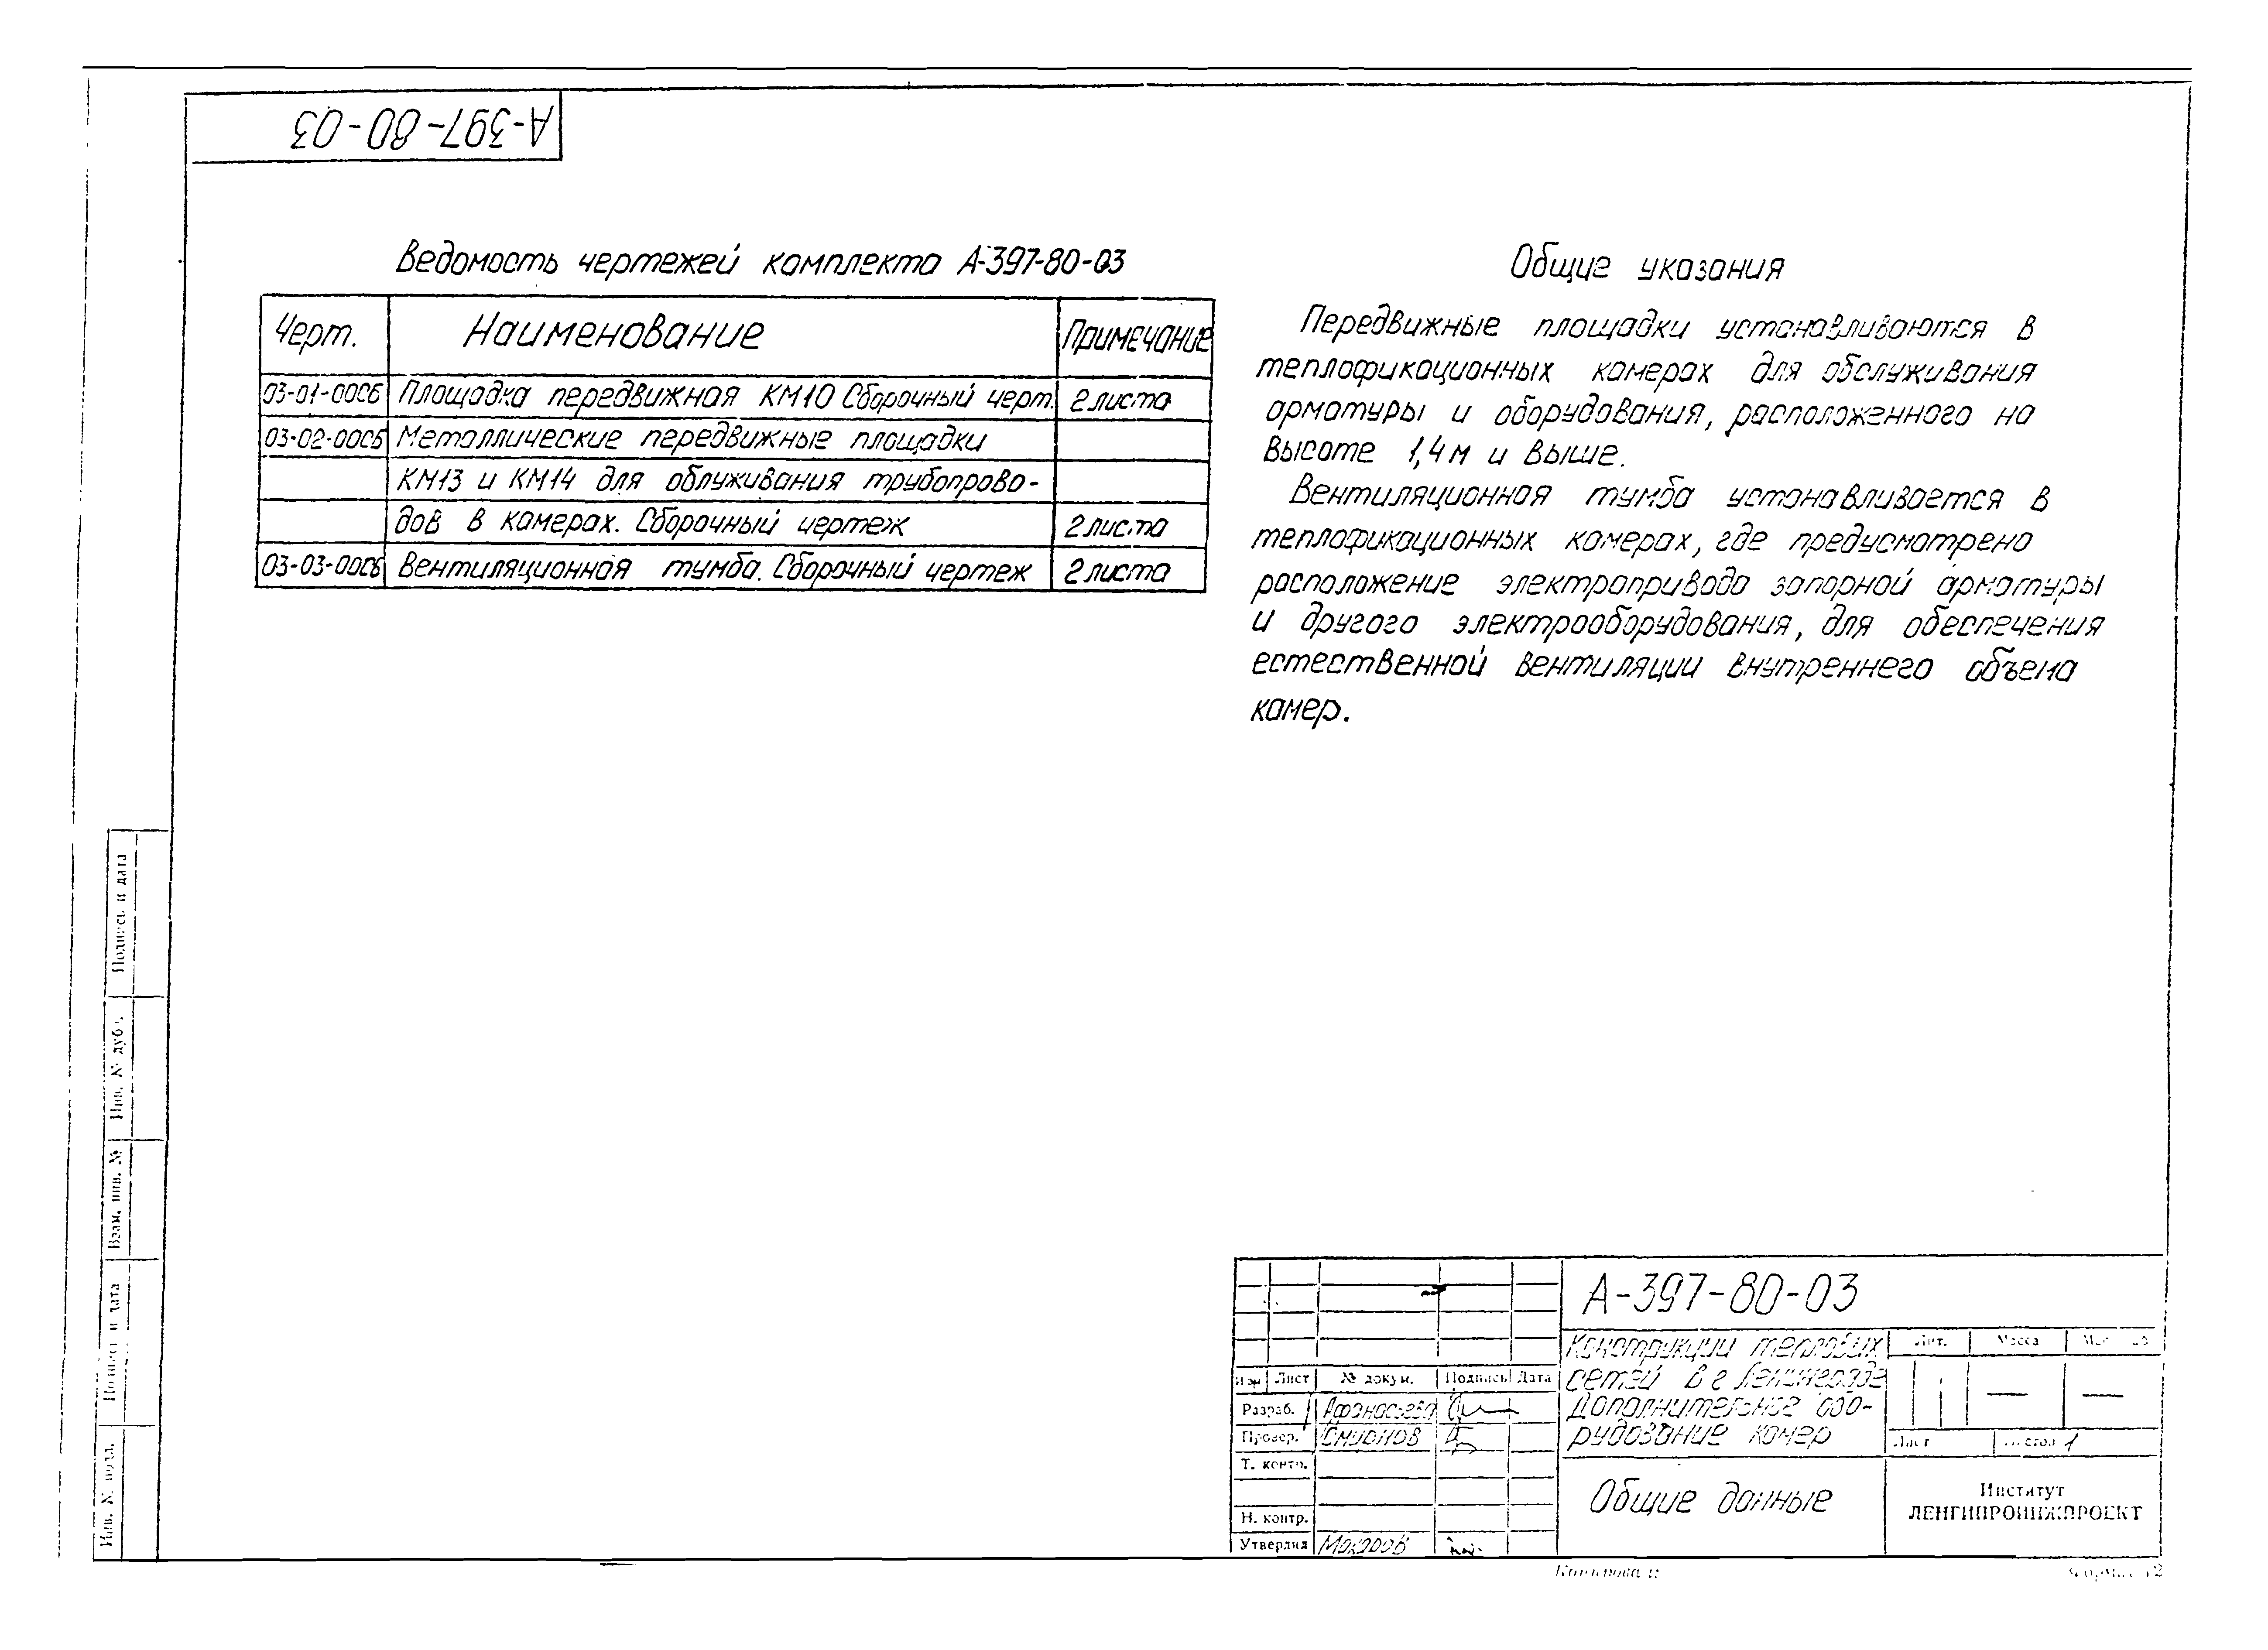 А-397-80-03
Ведомость чертежей комплекта А-397-80-03
Черт. Наименование Примечание
03-01-00СБ Площадка передвижная КМ10 Сборочный черт. 2 листа
03-02-00СБ Металлические передвижные площадки
КМ13 и КМ14 для облуживания трубопрово-
дов в камерах. Сборочный чертеж 2 листа
03-03-00СБ Вентиляционная тумба. Сборочный чертеж 2 листа
Общие указания
Передвижные площадки устанавливаются в
теплофикационных камерах для обслуживания
арматуры и оборудования, расположенного на
высоте 1,4 м и выше.
Вентиляционная тумба устанавливается в
теплофикационных камерах, где предусмотрено
расположение электропривода запорной арматуры
и другого электрооборудования, для обеспечения
естественной вентиляции внутреннего объема
камер.
Подпись и дата
Инв. № дубл.
Взам. инв. №
Подпись и дата
Инв. № подл.
А-397-80-03
Конструкции тепловых
сетей в г Ленинграде
Дополнительное обо-
рудование камер
Лит. Масса
— —
Изм Лист № докум. Подпись Дата
Разраб. Афанасьева
Провер. Смирнов
Т. контр.
Н. контр.
Утвердил
Лист Листов 1
Общие данные
Институт
ЛЕНГИПРОИНЖПРОЕКТ
Копировал
Формат 12